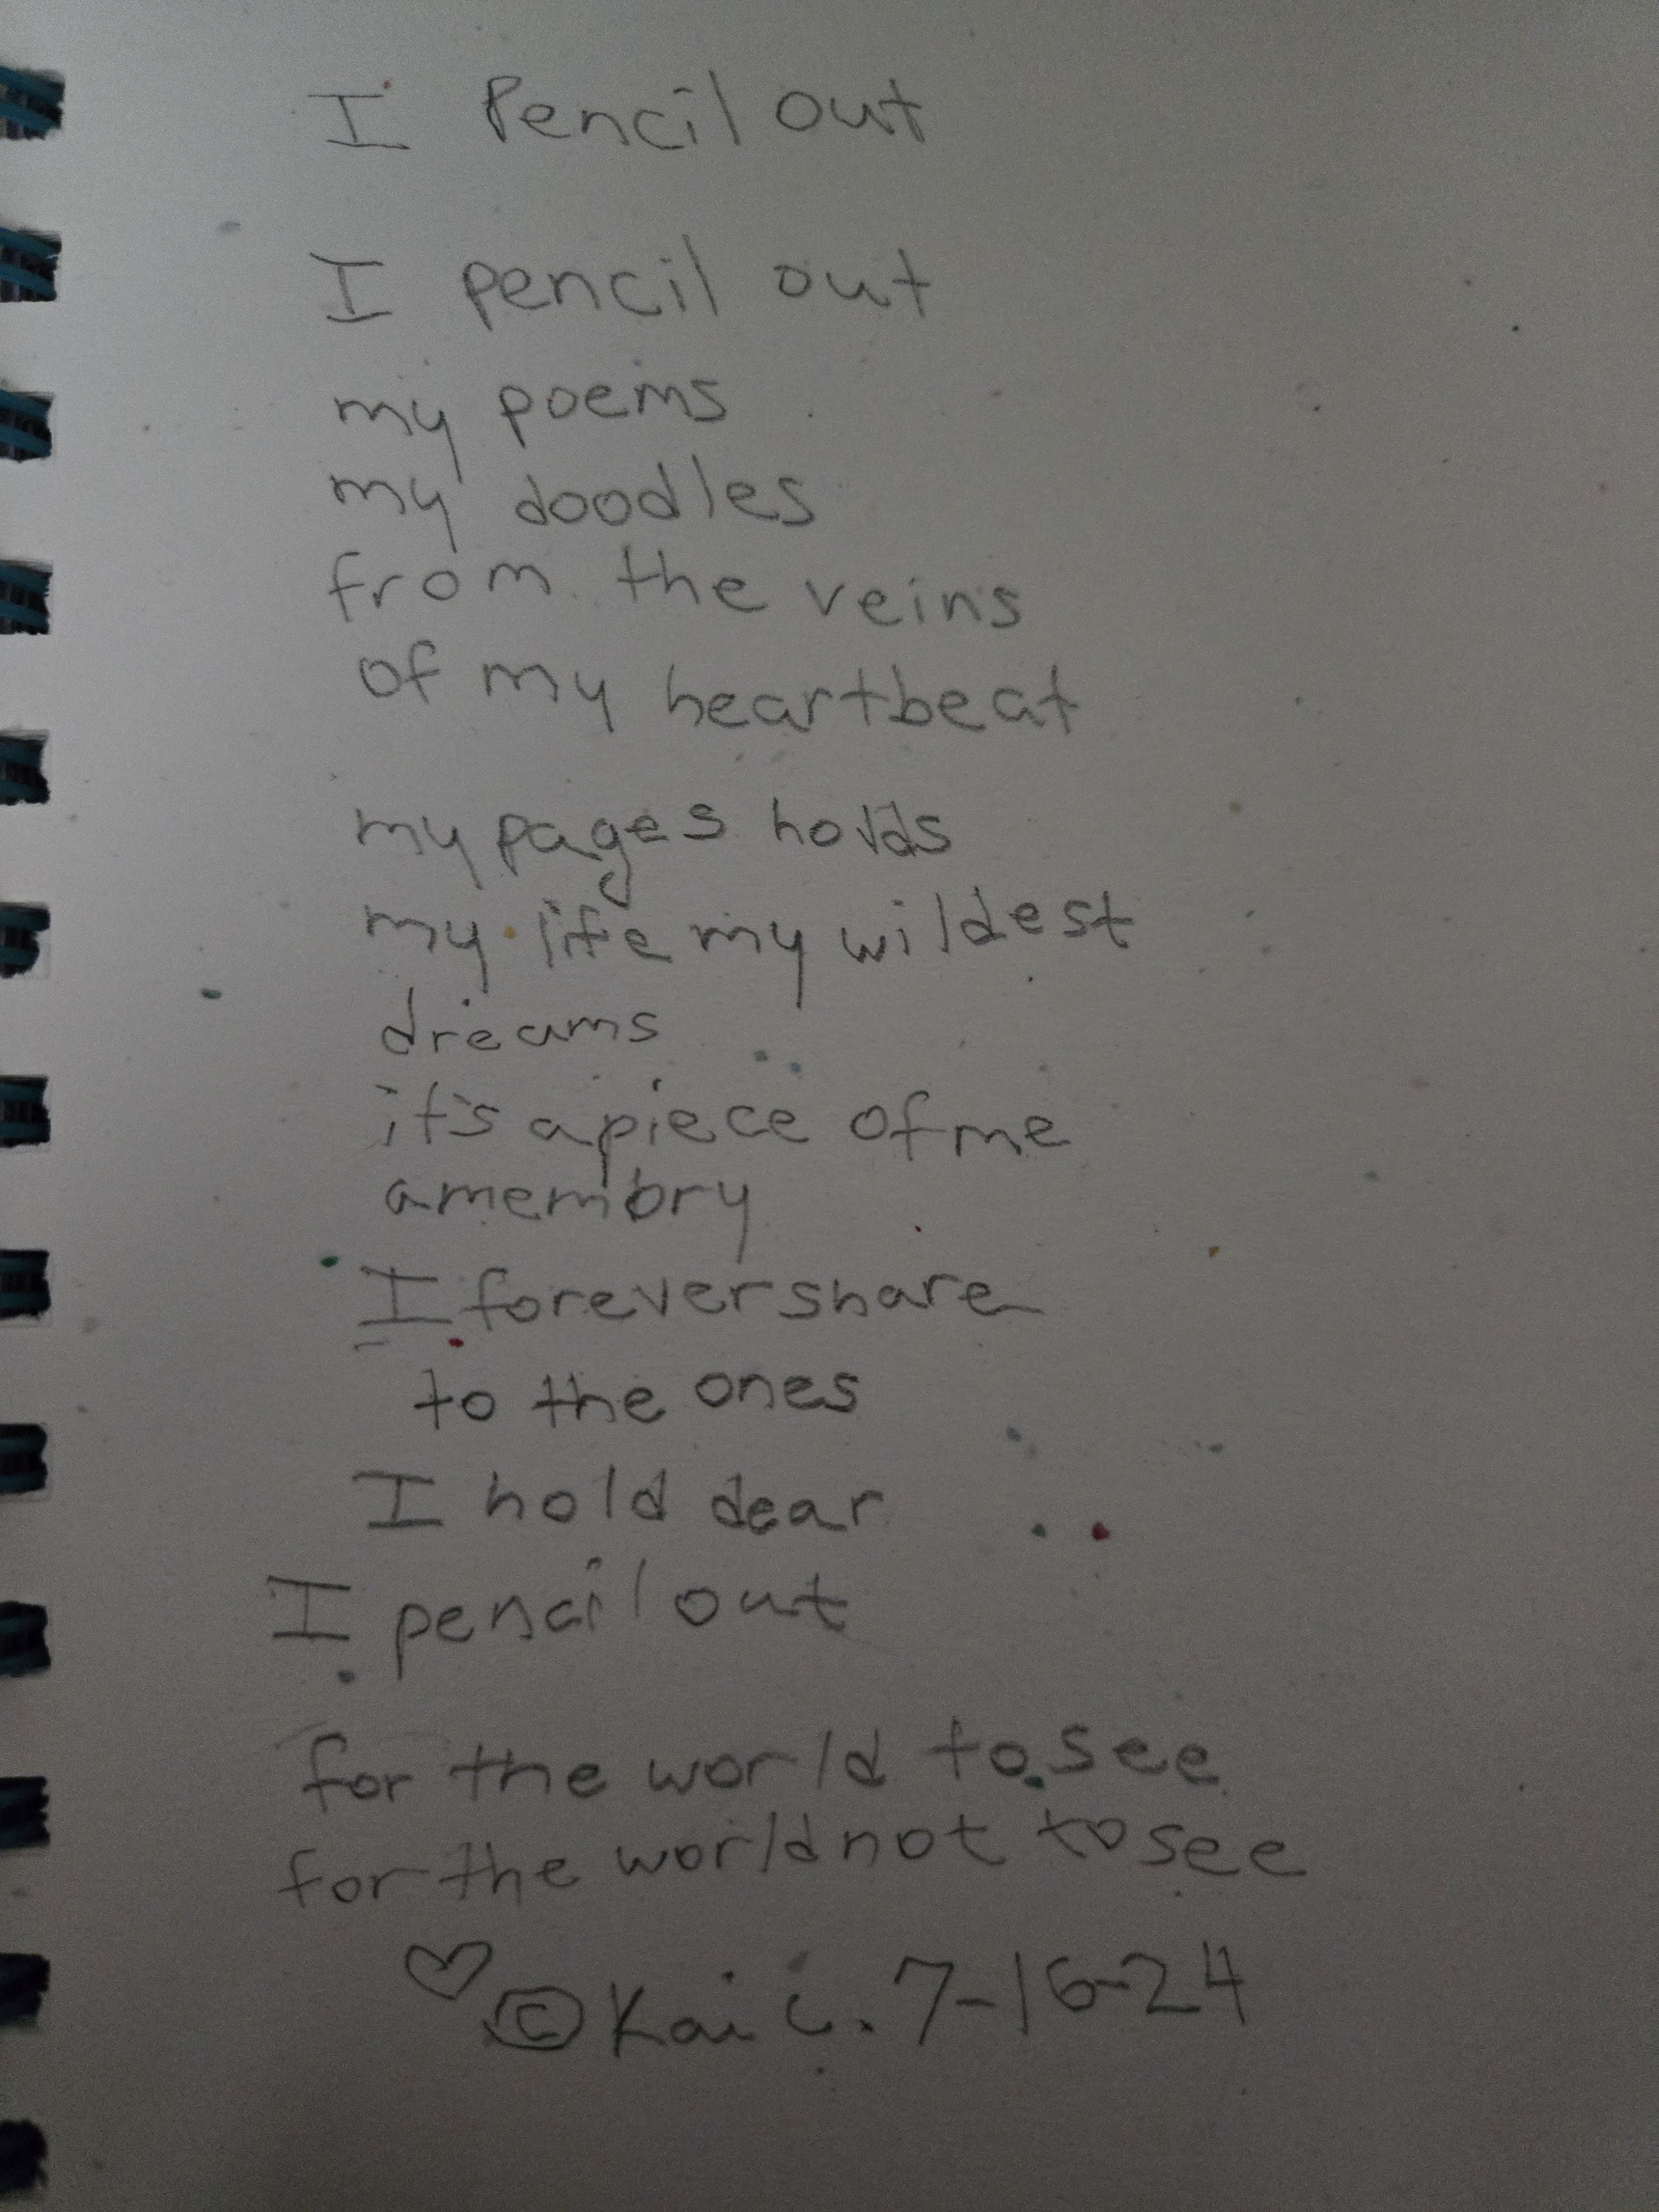 I Pencil out
I pencil out
my poems
my doodles
from the veins
of my heartbeat
my pages holds
my life my wildest
dreams
it's a piece of me
a memory
I forever share
to the ones
I hold dear
I pencil out
for the world to see
for the world not to see
♡ © Kai C. 7-16-24